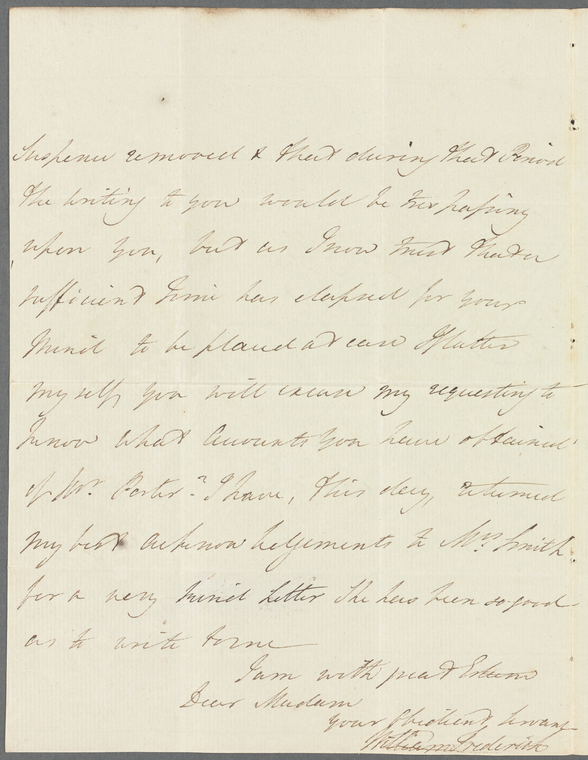 Suspense removed & that during that Period
the writing to you would be trespassing
upon you, but as I now trust that a
sufficient time has elapsed for your
Mind to be placed at ease I flatter
myself, you will excuse my requesting to
know what Accounts you have obtained
of Mr. Porter? I have, this day, returned
my best acknowledgements to Mrs Smith
for a very kind Letter She has been so good
as to write to me
I am with great Esteem
Dear Madam
your Obedient Servant
William Frederick